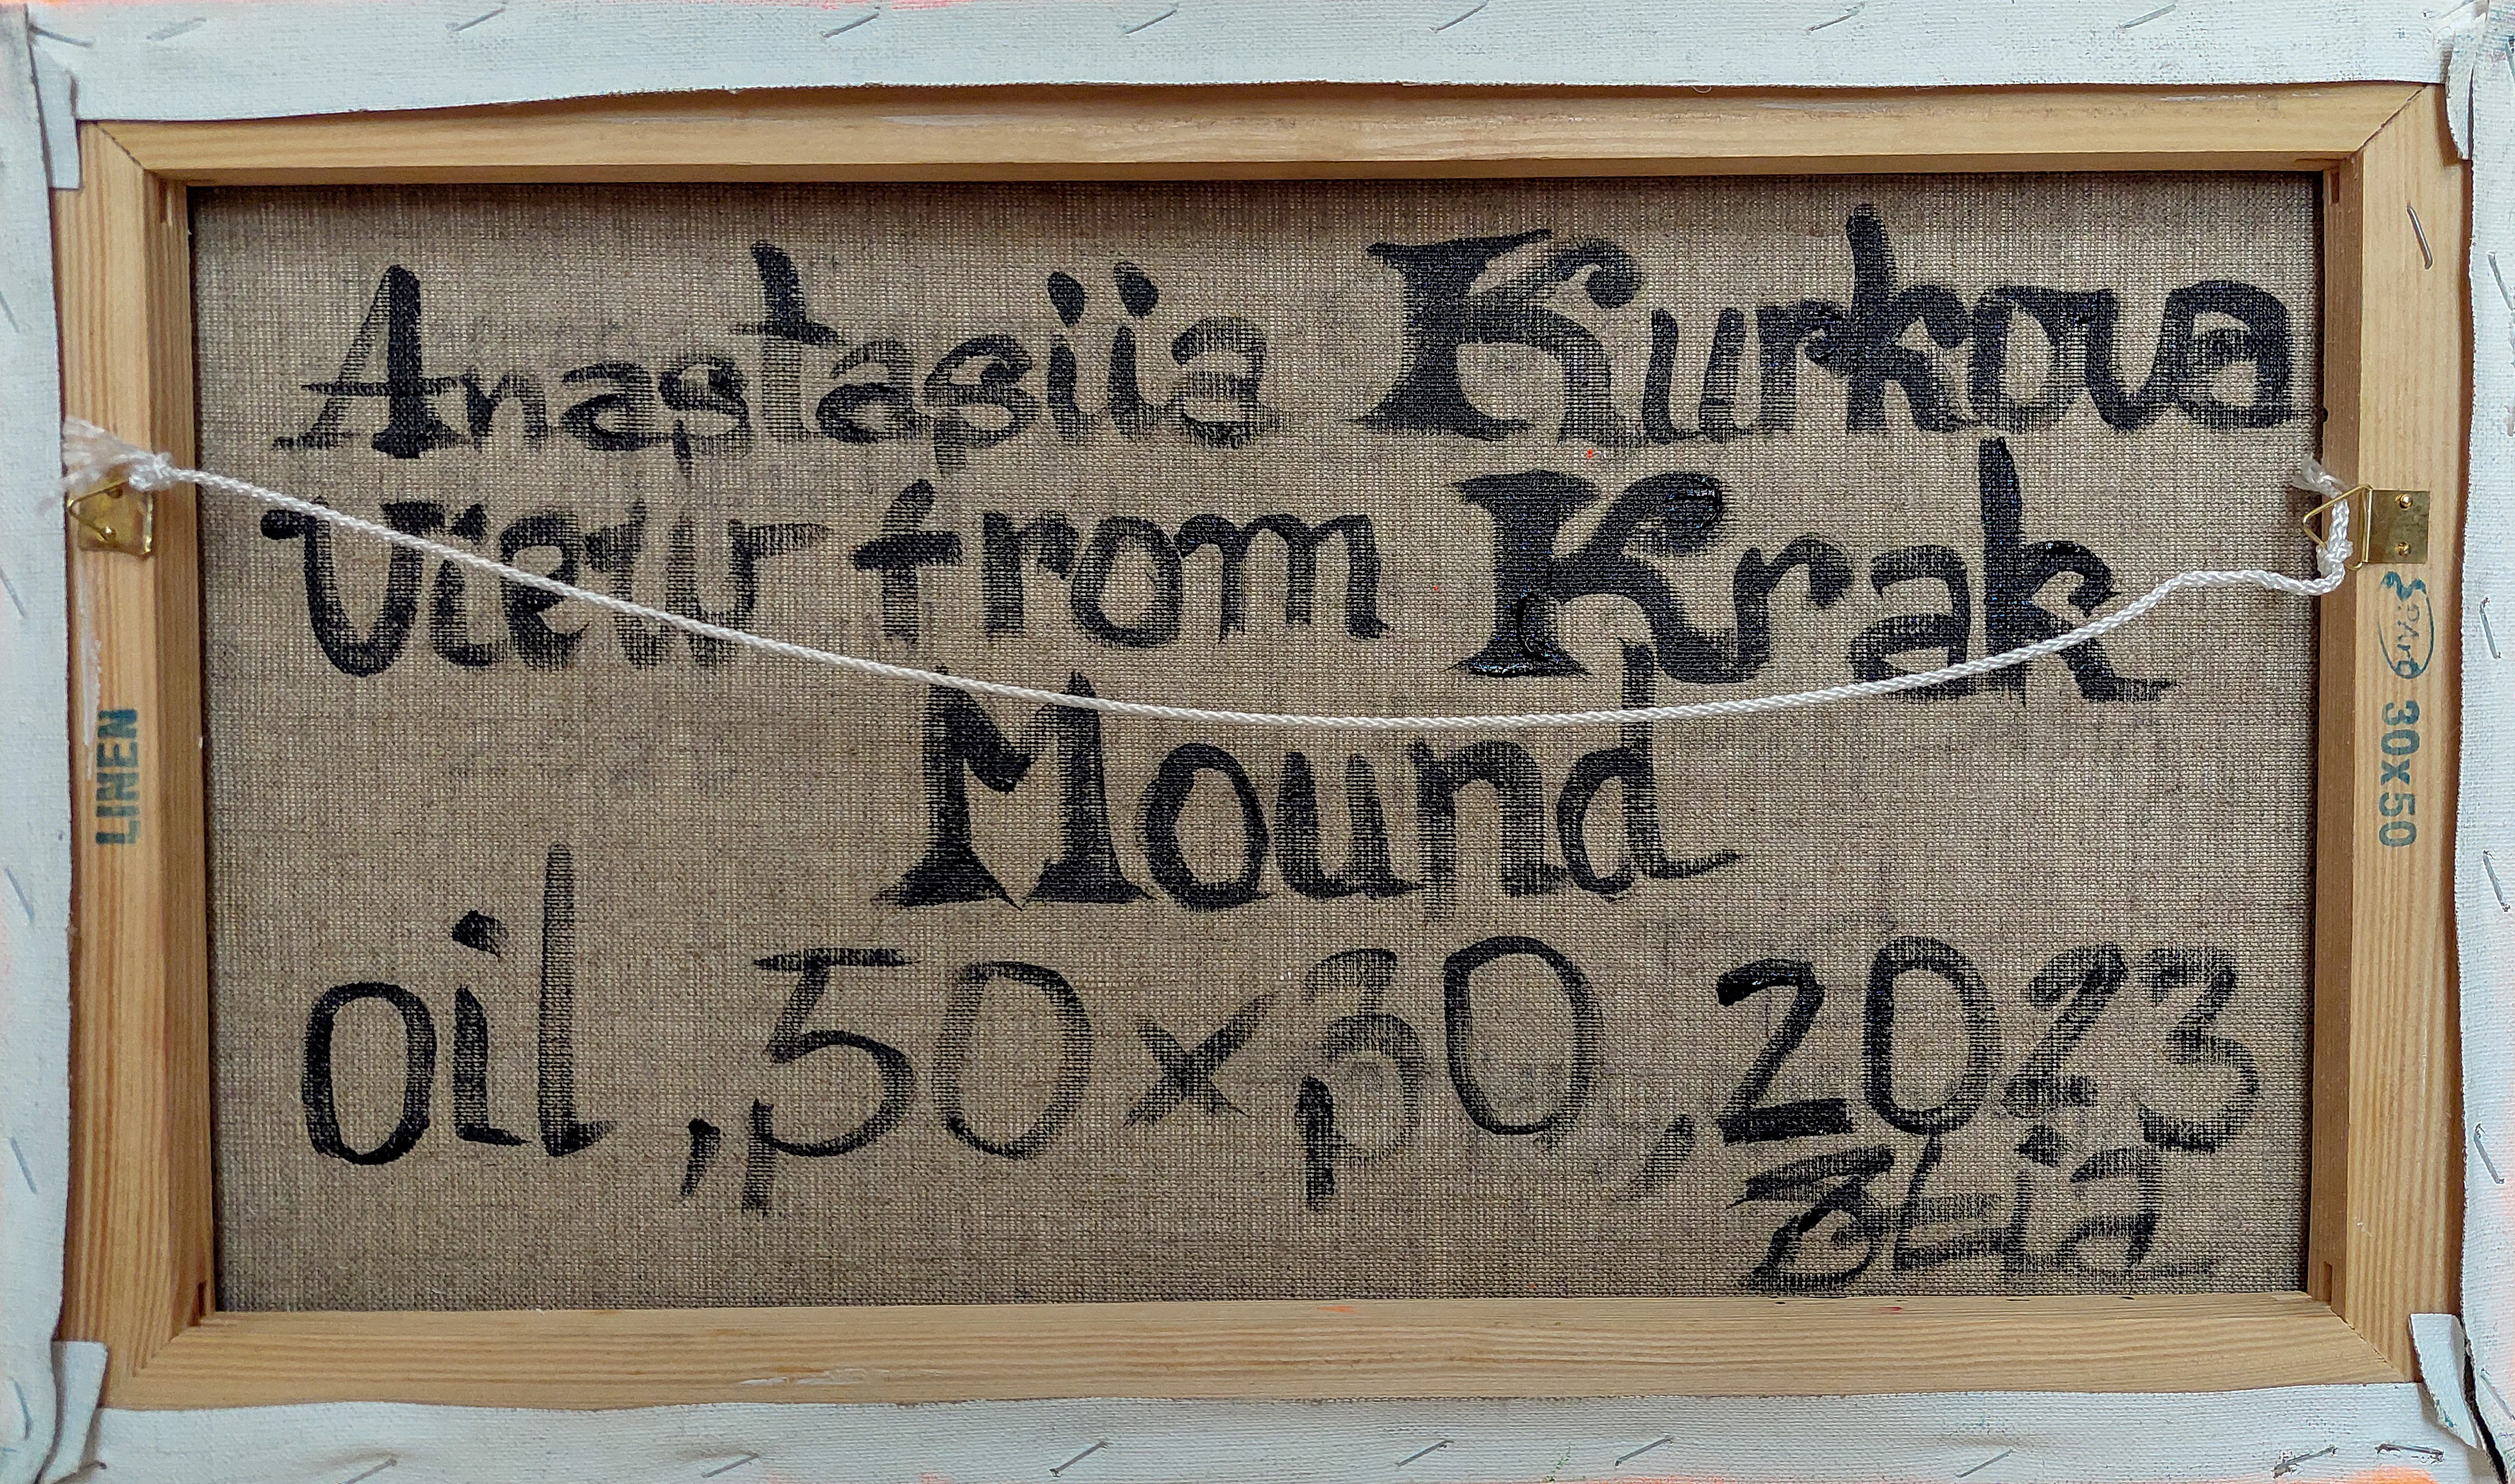 Anastasiia Kurkova
View from Krak
Mound
oil, 50x30, 2023
LINEN
30x50